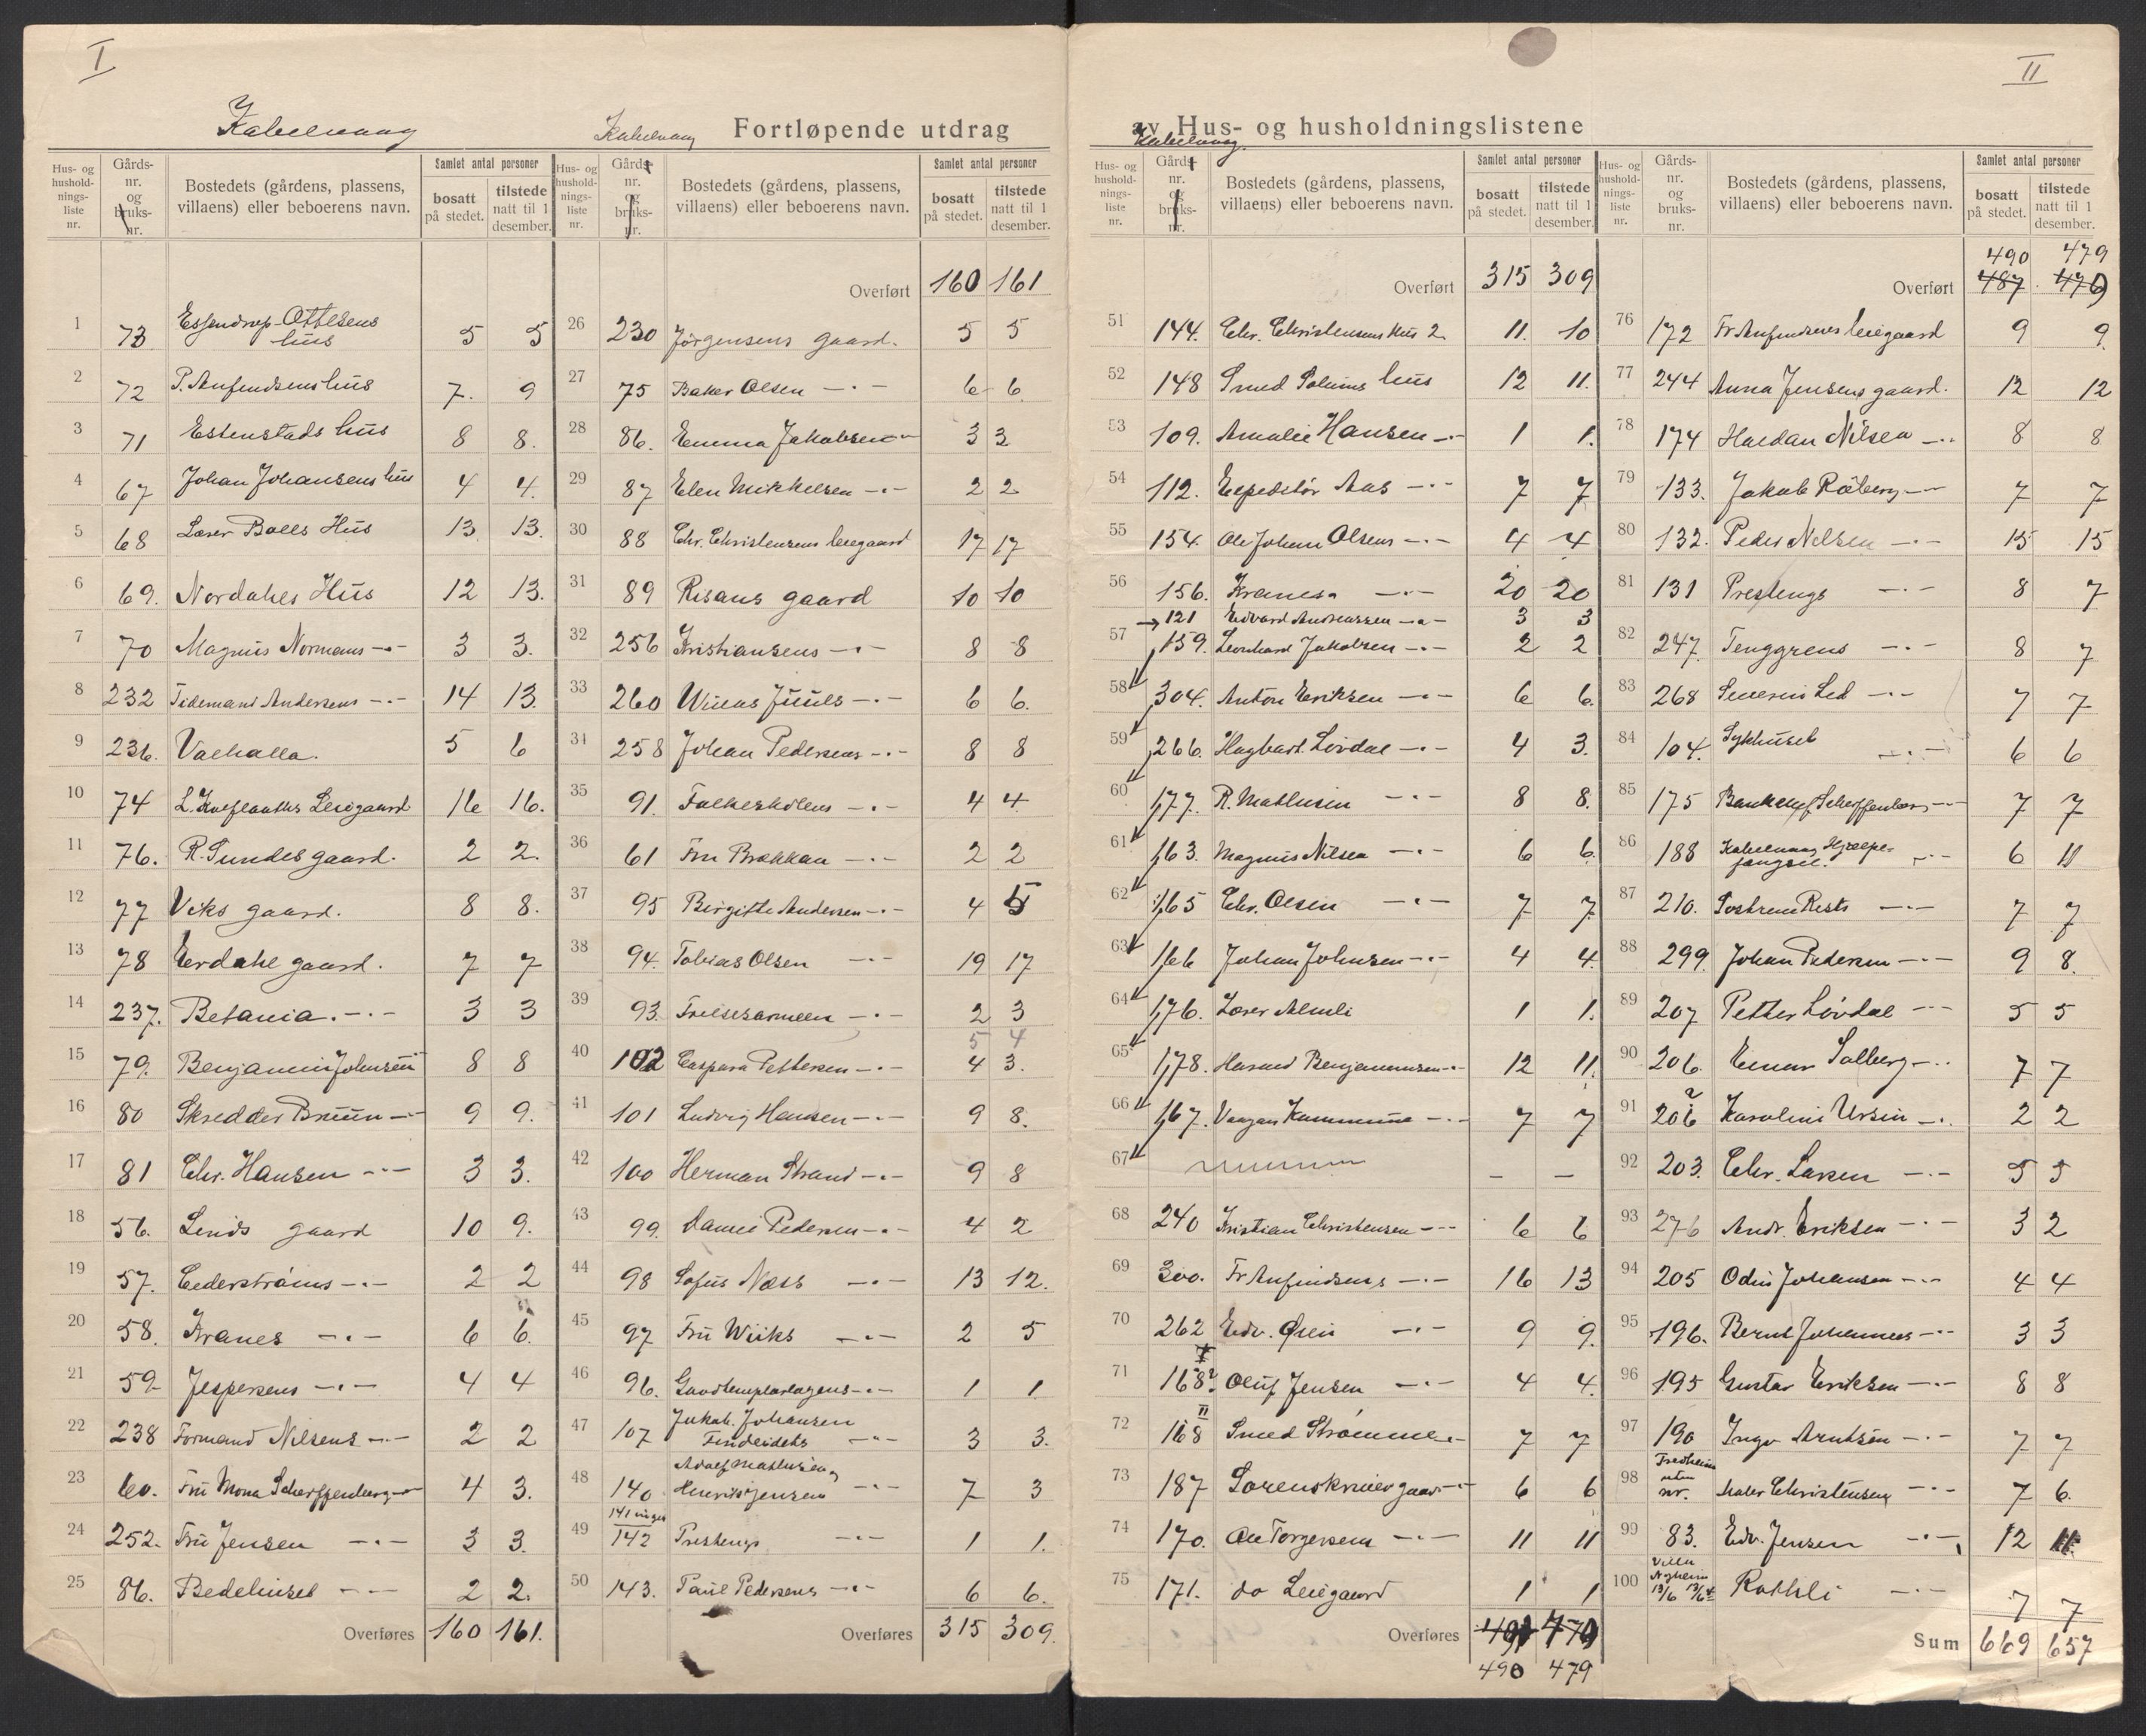 I
II
Kabelvaag
Kabelvaag
Fortløpende utdrag
av Hus- og husholdningslistene
Kabelvaag
Hus- og hushold-nings-liste nr.
Gårds-nr. og bruks-nr.
Bostedets (gårdens, plassens, villaens) eller beboerens navn.
Samlet antal personer
bosatt på stedet.
tilstede natt til 1 desember.
1 73 Essendrop-Ottesens hus 5 5
2 72 P. Anfindsens hus 7. 9
3 71 Estenstads hus 8 8.
4 67 Johan Johansens hus 4 4.
5 68 Lærer Bolls Hus 13 13.
6 69. Nordahls Hus 12 13.
7 70 Magnus Normans -"- 3 3.
8 232 Tidemand Andersens -"- 14 13.
9 236. Valhalla. 5 6
10 74 L. Kaeflanths Leiegaard 16 16.
11 76. R. Sundes gaard. 2 2.
12 77 Viks gaard. 8 8.
13 78 Erdahl gaard. 7 7
14 237. Betania. -"- 3 3
15 79. Benjamin Johnsen -"- 8 8
16 80 Skredder Bruun -"- 9 9.
17 81 Chr. Hansen -"- 3 3.
18 56. Linds gaard 10 9.
19 57. Cederstrøms -"- 2 2
20 58. Kranes -"- 6 6.
21 59 Jespersens -"- 4 4
22 238 Formand Nilsens -"- 2 2
23 60. Fru Mona Scheffenberg -"- 4 3.
24 252. Fru Jensen -"- 3 3.
25 86. Bedehuset -"- 2 2.
Overføres 160 161.
Overført 160 161
26 230 Jørgensens gaard. 5 5
27 75 Baker Olsen -"- 6 6.
28 86. Emma Jakobsen -"- 3 3
29 87 Elen Mikkelsen -"- 2 2
30 88 Chr. Christensens leiegaard 17 17
31 89 Risans gaard 10 10
32 256 Kristiansens -"- 8 8
33 260 Juuls -"- 6 6.
34 258 Johan Pedersens -"- 8 8
35 91. -"- 4 4.
36 61 Fru Brækkan -"- 2 2
37 95 Birgitte Andersen -"- 4 5
38 94. Tobias Olsen -"- 19 17
39 93. Frelsesarmeen -"- 2 3
5 4
40 102 Caspara Pettersen -"- 4 3.
41 101 Ludvig Hansen -"- 9 8.
42 100 Herman Strand -"- 9 8
43 99. Daniel Pedersen -"- 4 2
44 98 Sofus Næss -"- 13 12.
45 97 Fru Wiiks -"- 2 5
46 96. Goodtemplarlogens -"- 1 1
47 107 Jakob. Johansen Findeidets -"- 3 3.
48 140 Adolf Mathisen og Henrik Jensen -"- 7 3
141 inget
49 142 Prestengs -"- 1 1.
50 143. Paul Pedersens -"- 6 6.
Overføres 315 309.
Overført 315 309
51 144. Chr. Christensens Hus 2 11. 10
52 148 Smed Solums hus 12 11.
53 109. Amalie Hansen -"- 1 1.
54 112. Expeditør Aas -"- 7 7
55 154. Ole Johan Olsens -"- 4 4
56 156. -"- 20 20
121 Edvard Andreassen -"- 3 3
57 159. Leonhard Jakobsen -"- 2 2
58 304. Anton Eriksen -"- 6 6.
59 266. Hagbart Løvdal -"- 4 3.
60 177. R. Mathisen -"- 8 8.
61 163. Magnus Nilsen -"- 6 6.
62 165 Chr. Olsen -"- 7 7
63 166 Johan Johnsen -"- 4 4.
64 176. Lærer Almli 1 1.
65 178. Harald Benjaminsen -"- 12 11.
66 167. Vaagan Kommune -"- 7 7
67 - -
68 240 Kristian Christensen -"- 6 6
69 300. Fr Anfindsens -"- 16 13
70 262 Edv. -"- 9 9.
71 168 I Oluf Jensen -"- 4 4.
72 168 II Smed Strømme -"- 7 7
73 187 Sorenskriver gaard -"- 6 6
74 170. Ole Torgersens -"- 11 11
75 171. do Leiegaard 1 1
Overføres
490 479
490 479
Overført 487 476
76 172 Fr Anfindsens leiegaard 9 9.
77 244 Anna Jensens gaard. 12 12
78 174 Haldan Nilsen -"- 8 8
79 133. Jakob Råberg -"- 7 7
80 132. Peder Nilsen -"- 15 15
81 131 Prestengs -"- 8 7
82 247. Tenggrens -"- 8 7
83 268 Severin Lid -"- 7 7
84 104. Sykhuset -"- 6 6
85 175 Bankchef Scheffenberg -"- 7 7
86 188 Kabelvaag Hjælpefængsel. -"- 6 11
87 210. -"- 7 7
88 299. Johan Pedersen -"- 9 8.
89 207 Petter Løvdal -"- 5 5
90 206. Einar Solberg -"- 7 7
91 206 2 Karoline Ursin -"- 2 2
92 203. Chr. Larsen -"- 5 5
93 276 Andr. Eriksen -"- 3 2
94 205 Odin Johansen -"- 4 4
95 196. Bernt Johannes -"- 3 3
96 195 Gustav Eriksen -"- 8 8
97 190 Ingv Arntsen -"- 7 7
98 Fredheim uten nr. Maler Christensen -"- 7 6.
99 83. Edv. Jensen -"- 12 11.
100 Villa Nyheim 13/6 Rothli -"- 7 7
Sum 669 657